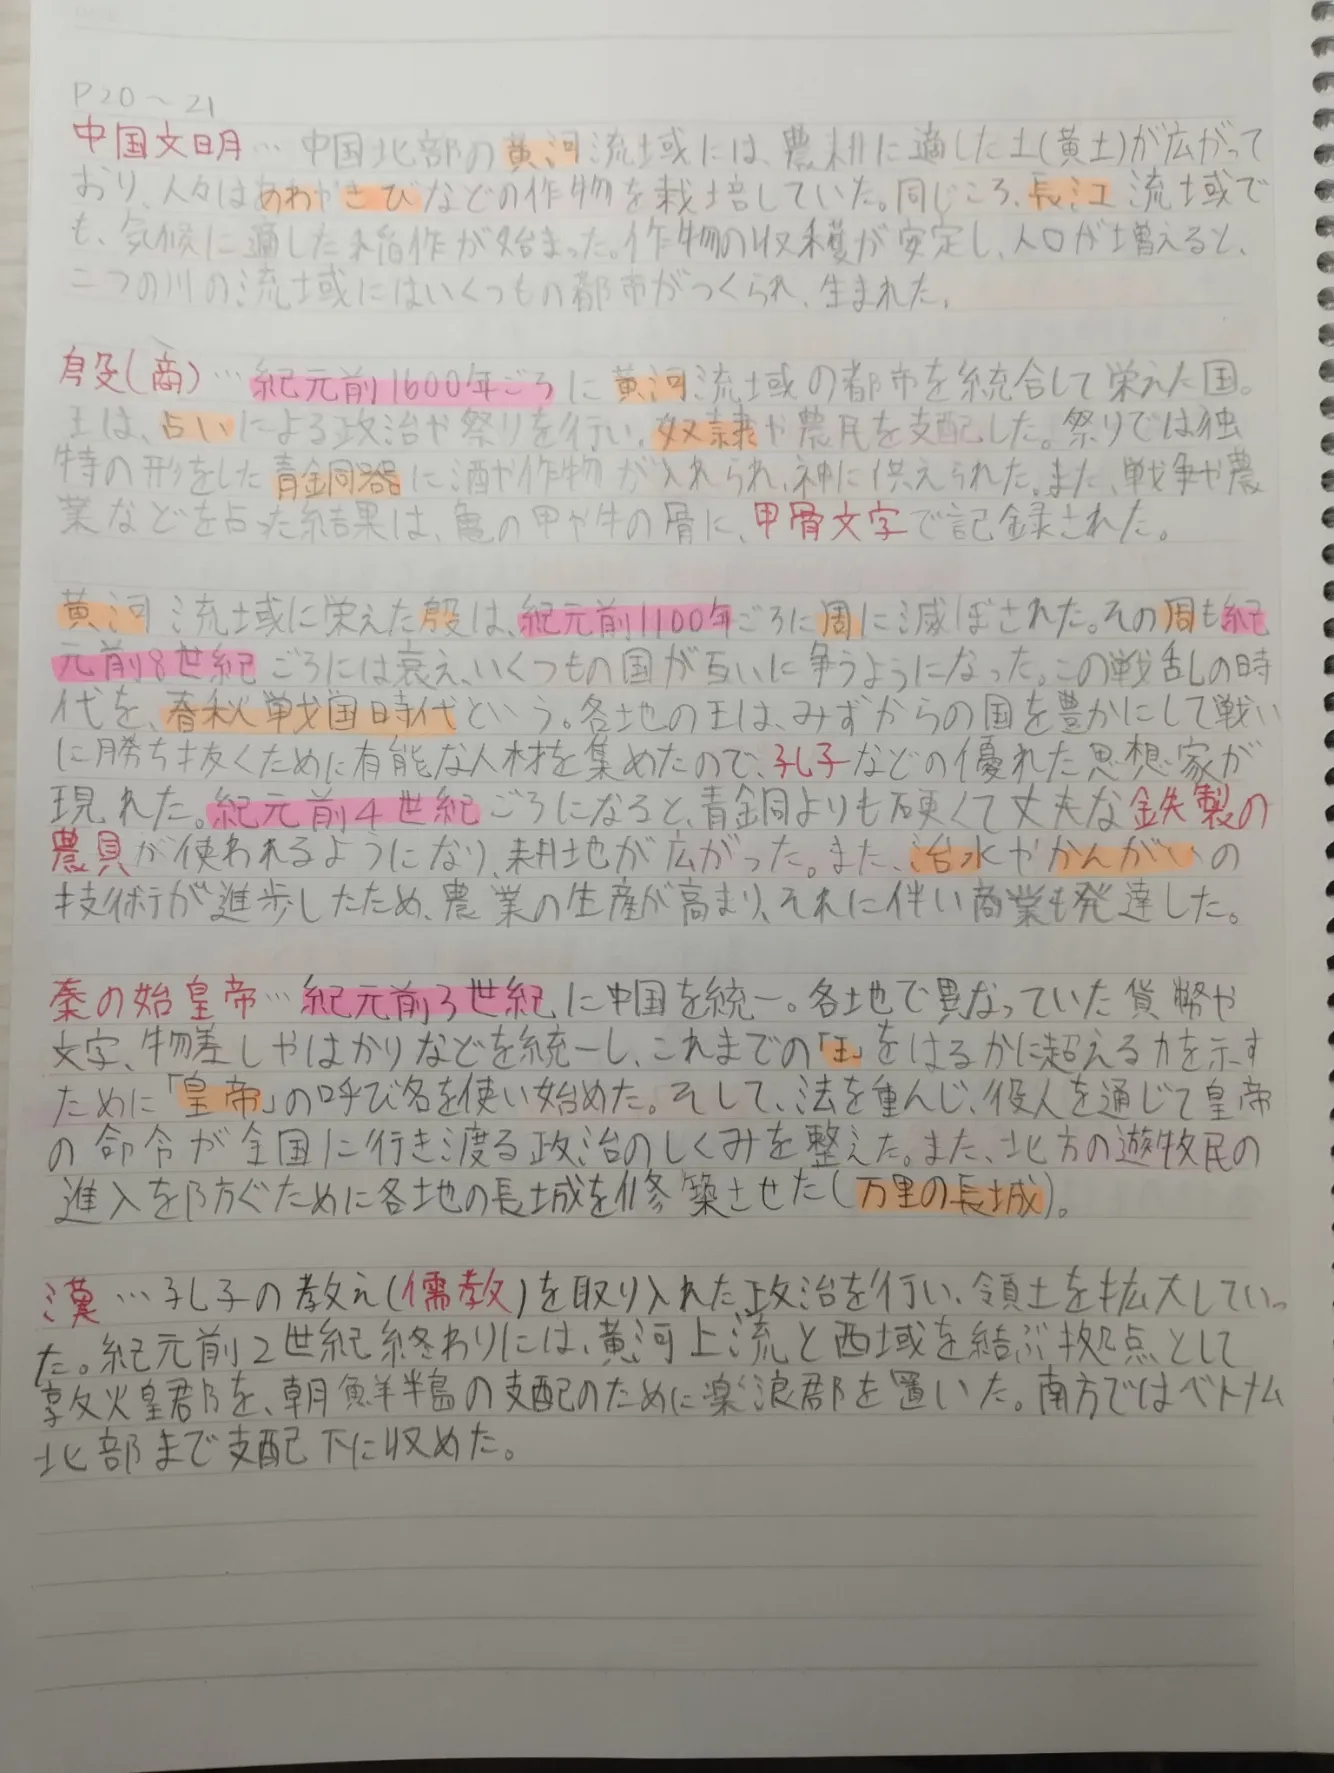 P20〜21
中国文明…中国北部の黄河流域には、農耕に適した土(黄土)が広がって
おり、人々はあわやきびなどの作物を栽培していた。同じころ、長江流域で
も、気候に適した稲作が始まった。作物の収穫が安定し、人口が増えると、
二つの川の流域にはいくつもの都市がつくられ、生まれた。
殷(商)…紀元前1600年ごろに黄河流域の都市を統合して栄えた国。
王は、占いによる政治や祭りを行い、奴隷や農民を支配した。祭りでは独
特の形をした青銅器に酒や作物が入れられ、神に供えられた。また、戦争や農
業などを占った結果は、亀の甲や牛の骨に、甲骨文字で記録された。
黄河流域に栄えた殷は、紀元前1100年ごろに周に滅ぼされた。その周も紀
元前8世紀ごろには衰え、いくつもの国が互いに争うようになった。この戦乱の時
代を、春秋戦国時代という。各地の王は、みずからの国を豊かにして戦い
に勝ち抜くために有能な人材を集めたので、孔子などの優れた思想家が
現れた。紀元前4世紀ごろになると、青銅よりも硬くて丈夫な鉄製の
農具が使われるようになり、耕地が広がった。また、治水やかんがいの
技術が進歩したため、農業の生産が高まり、それに伴い商業も発達した。
秦の始皇帝…紀元前3世紀に中国を統一。各地で異なっていた貨幣や
文字、物差しやはかりなどを統一し、これまでの「王」をはるかに超える力を示す
ために「皇帝」の呼び名を使い始めた。そして、法を重んじ、役人を通じて皇帝
の命令が全国に行き渡る政治のしくみを整えた。また、北方の遊牧民の
進入を防ぐために各地の長城を修築させた(万里の長城)。
漢…孔子の教え(儒教)を取り入れた政治を行い、領土を拡大していっ
た。紀元前2世紀終わりには、黄河上流と西域を結ぶ拠点として
敦煌郡を、朝鮮半島の支配のために楽浪郡を置いた。南方ではベトナム
北部まで支配下に収めた。